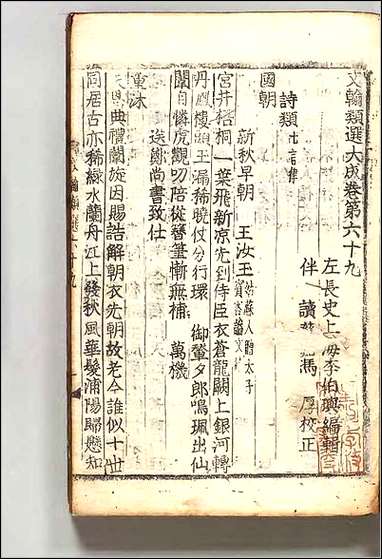 文翰類選大成卷第六十九
左長史上海李伯璵編輯
伴讀 馮 厚校正
詩類 七言律
國朝
新秋早朝 王汝玉 姑蘇人贈太子賓客謚
宮井梧桐一葉飛新凉先到侍臣衣蒼龍闕上銀河轉
丹鳳樓頭玉漏稀曉仗分行環 御輦夕郎鳴珮出仙
闈自憐虎觀叨陪從簪筆慚無補 萬機
送鄭尚書致仕
重沐
天恩典禮闈旋因賜誥解朝衣先朝故老今誰似十世
同居古亦稀綠水蘭舟江上發秋風華髮浦陽歸懸知